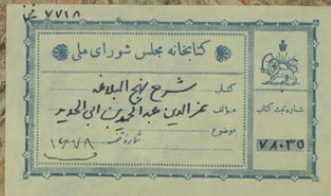 کتابخانه مجلس شورای ملی
کتاب شرح نهج البلاغه
مؤلف عزالدین عبدالحمید بن ابی الحدید
موضوع
شماره ثبت کتاب
۷۸۰۳۵